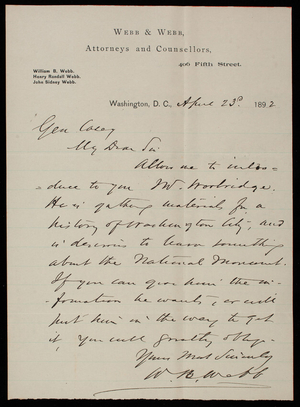 WEBB & WEBB,
Attorneys and Counsellors,
406 Fifth Street.
William B. Webb.
Henry Randall Webb.
John Sidney Webb.
Washington, D. C., April 23d 1892
Gen Casey
My Dear Sir
Allow me to intro-
duce to you Mr.
He is getting material for a
history of Washington City, and
is desirous to learn something
about the National Monument.
If you can give him the in-
formation he wants, or will
put him in the way to get
it, you will greatly oblige
Yours Most Sincerely
W. B. Webb